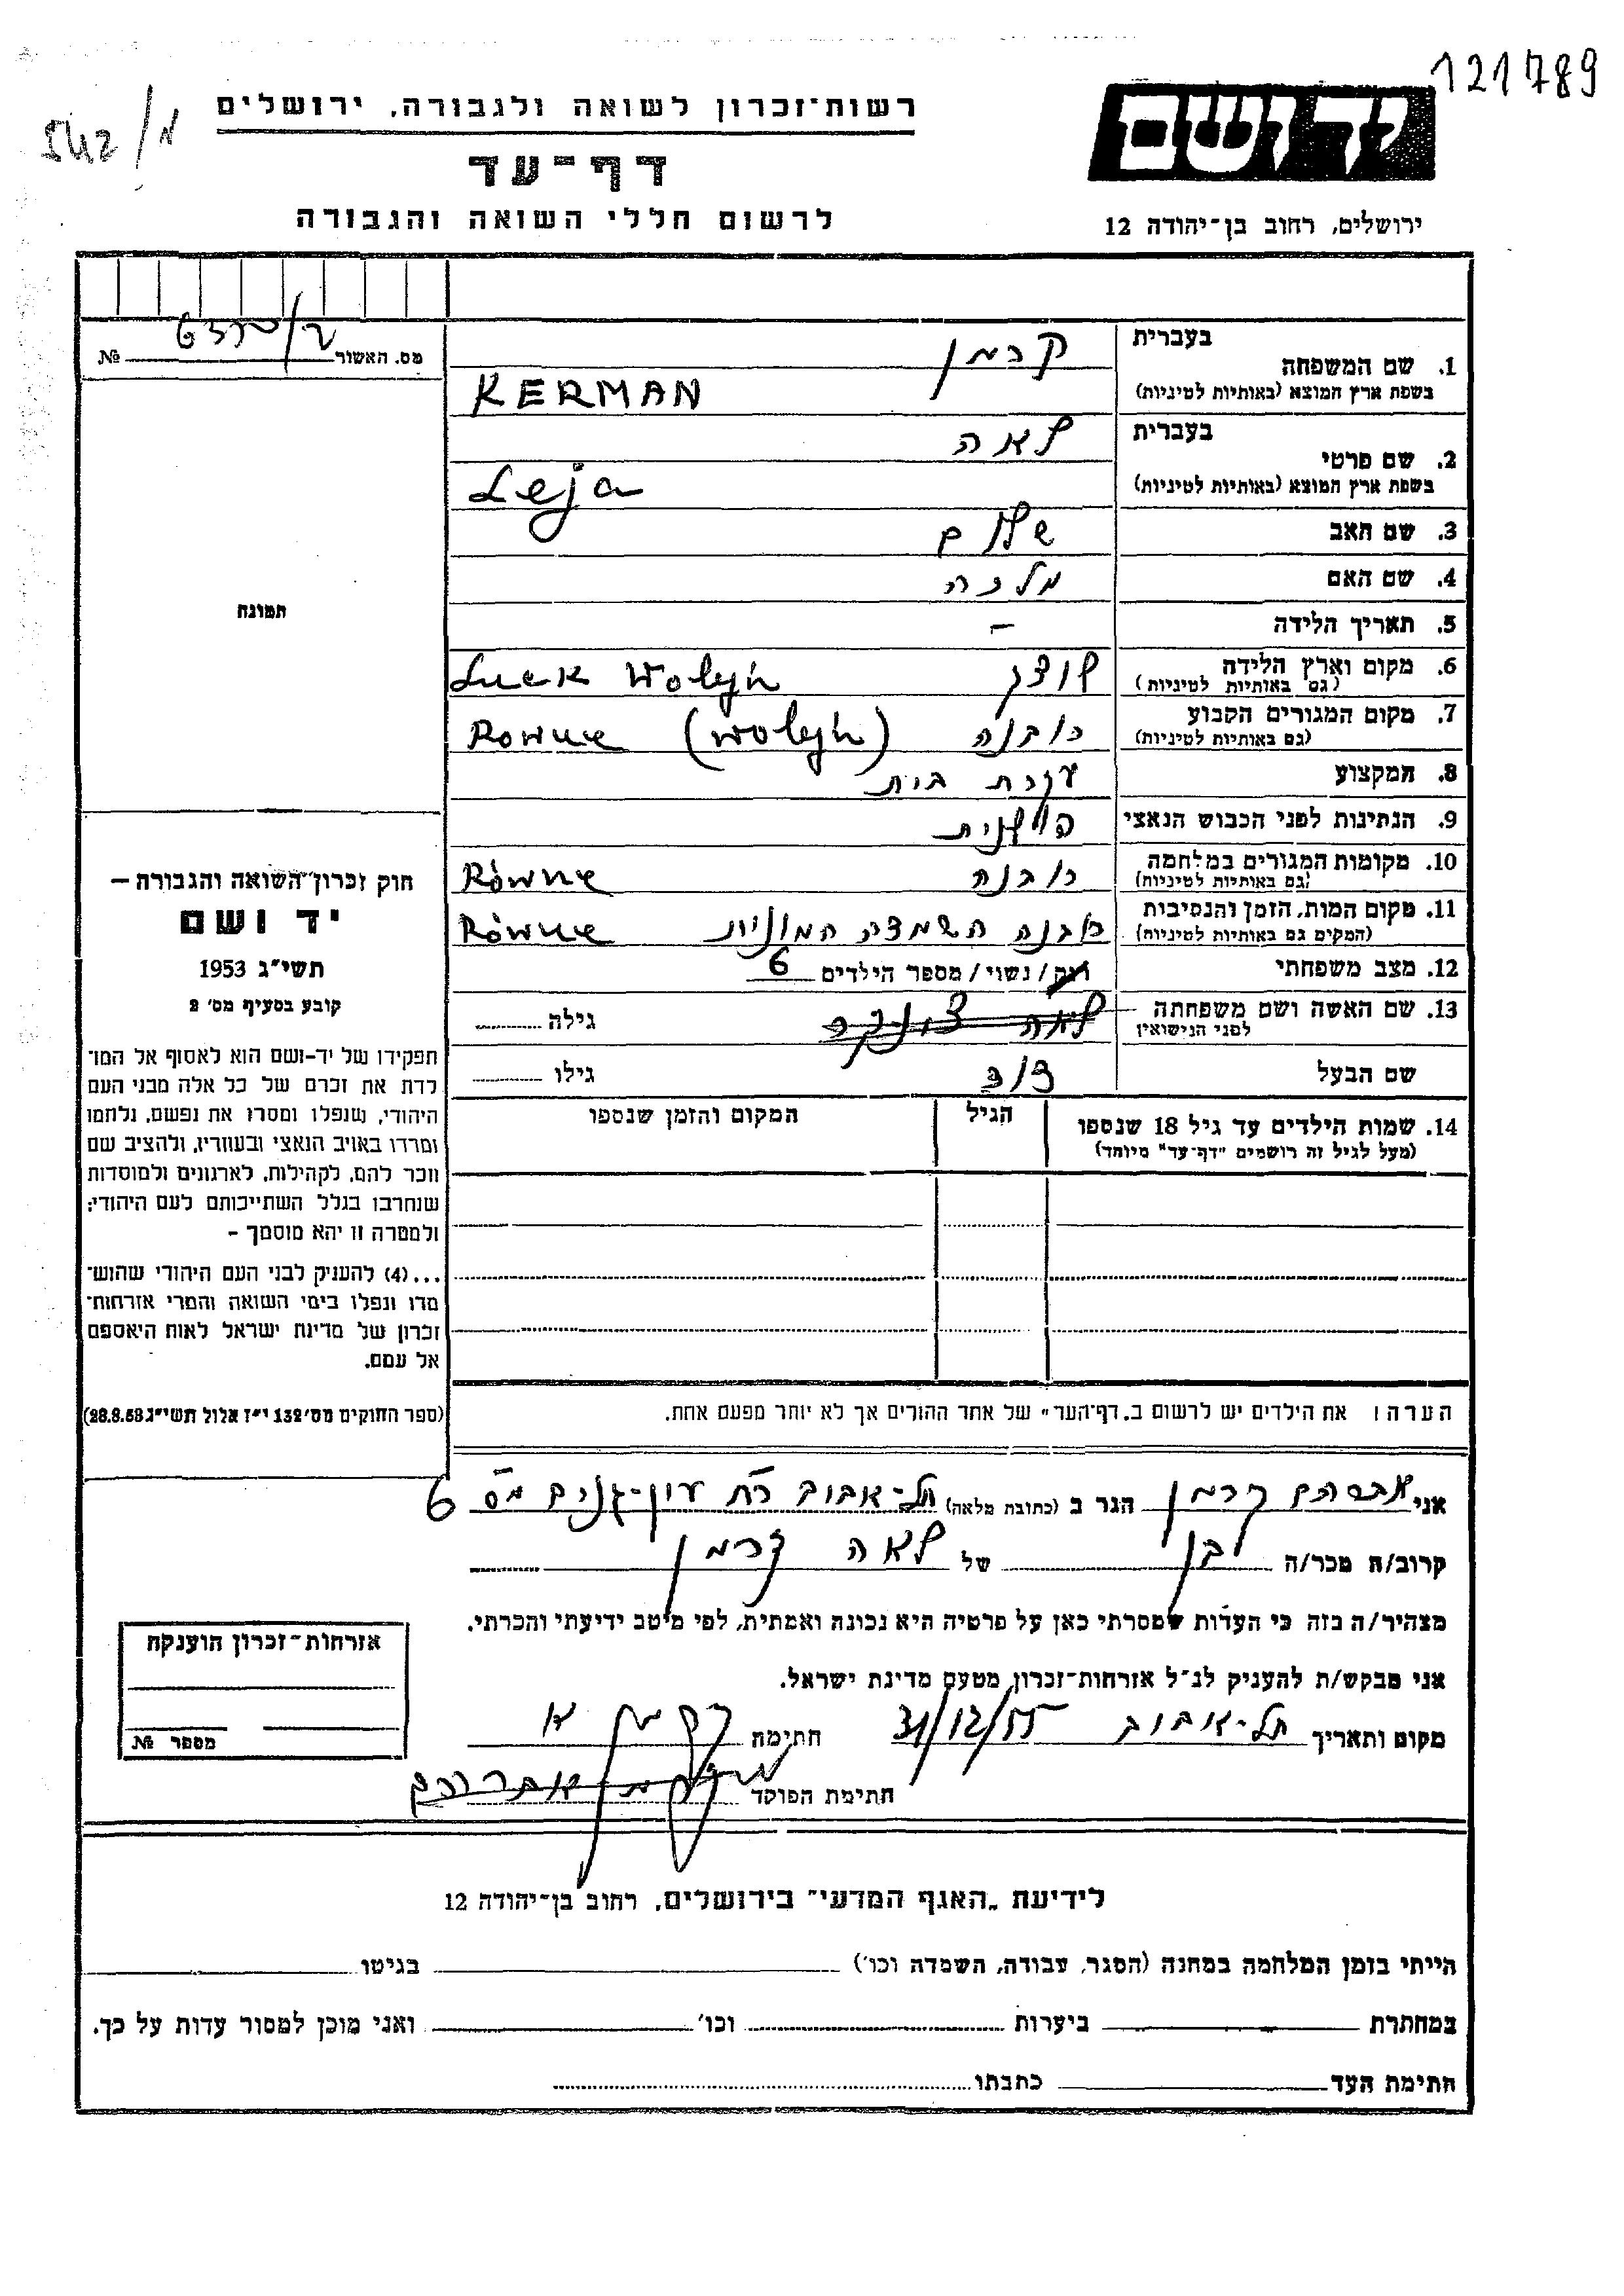 121789
רשות־זכרון לשואה ולגבורה, ירושלים
יד ושם
דף־עד
לרשום חללי השואה והגבורה
ירושלים, רחוב בן־יהודה 12
מס. האשור № 
1. שם המשפחה
בעברית קרמן
בשפת ארץ המוצא (באותיות לטיניות) KERMAN
2. שם פרטי
בעברית לאה
בשפת ארץ המוצא (באותיות לטיניות) Leja
3. שם האב שלום
4. שם האם מלכה
5. תאריך הלידה —
6. מקום וארץ הלידה לוצק Luck Wołyń
(גם באותיות לטיניות)
7. מקום המגורים הקבוע רובנה Rowne (Wołyń)
(גם באותיות לטיניות)
8. המקצוע עקרת בית
9. הנתינות לפני הכבוש הנאצי פולנית
10. מקומות המגורים במלחמה רובנה Równe
(גם באותיות לטיניות)
11. מקום המות, הזמן והנסיבות רובנה השמדה המונית Równe
(המקום גם באותיות לטיניות)
12. מצב משפחתי רוק / נשוי / מספר הילדים 6
13. שם האשה ושם משפחתה לאה גילה
לפני הנישואין
שם הבעל גילו
14. שמות הילדים עד גיל 18 שנספו הגיל המקום והזמן שנספו
(מעל לגיל זה רושמים "דף־עד" מיוחד)
הערה: את הילדים יש לרשום ב„דף־העד" של אחד ההורים אך לא יותר מפעם אחת.
תמונה
חוק זכרון השואה והגבורה —
יד ושם
תשי"ג 1953
קובע בסעיף מס' 2
תפקידו של יד־ושם הוא לאסוף אל המו־
לדת את זכרם של כל אלה מבני העם
היהודי, שנפלו ומסרו את נפשם, נלחמו
ומרדו באויב הנאצי ובעוזריו, ולהציב שם
וזכר להם, לקהילות, לארגונים ולמוסדות
שנחרבו בגלל השתייכותם לעם היהודי;
ולמטרה זו יהא מוסמך –
...(4) להעניק לבני העם היהודי שהוש־
מדו ונפלו בימי השואה והמרי אזרחות־
זכרון של מדינת ישראל לאות היאספם
אל עמם.
(ספר החוקים מס' 132 י"ז אלול תשי"ג 28.8.53)
אני אברהם קרמן הגר ב (כתובת מלאה) תל-אביב רח' עין-גנים מס' 6
קרוב/ה מכר/ה בן של לאה קרמן
מצהיר/ה בזה כי העדות שמסרתי כאן על פרטיה היא נכונה ואמתית, לפי מיטב ידיעתי והכרתי.
אני מבקש/ת להעניק לנ"ל אזרחות־זכרון מטעם מדינת ישראל.
מקום ותאריך תל-אביב 31/12/55 חתימה קרמן א
חתימת הפוקד
אזרחות־זכרון הוענקה
מספר №
לידיעת „האגף המדעי" בירושלים, רחוב בן־יהודה 12
הייתי בזמן המלחמה במחנה (הסגר, עבודה, השמדה וכו') בגיטו
במחתרת ביערות וכו' ואני מוכן למסור עדות על כך.
חתימת העד כתבתו